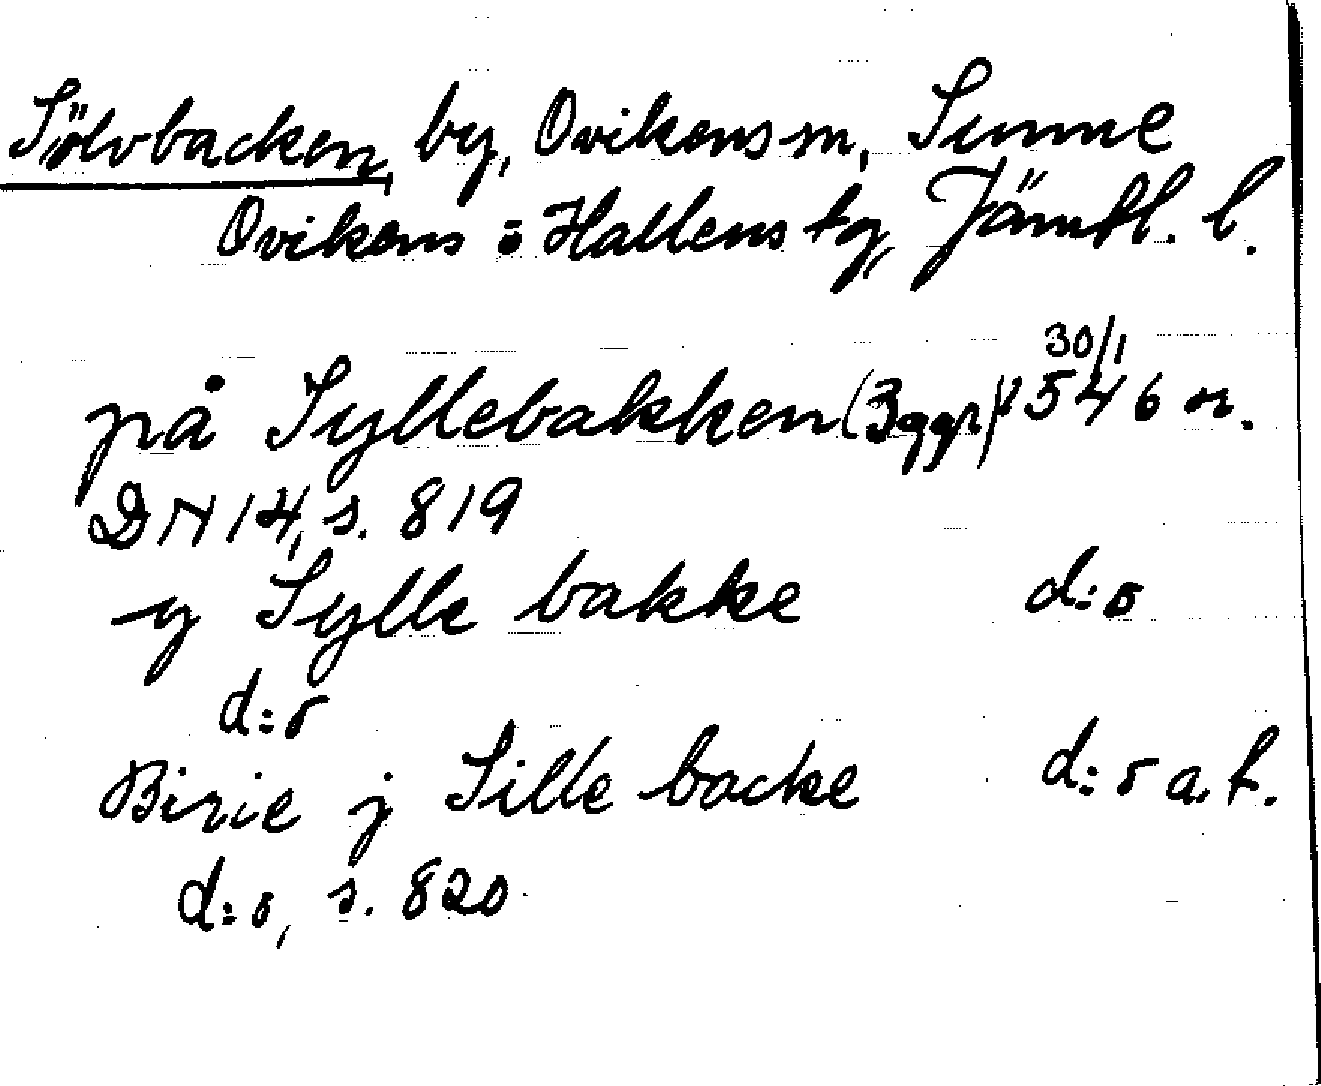 Sölvbacken, by, Ovikens sn, Sunne
Ovikens o Hallens tg, Jämtl. l.
på Syllebakken (3 ggr) 30/1 1546 n.
DN 14, s. 819
y Sylle bakke d:o
d:o
Birie j Sille backe d:o a.f.
d:o, s. 820